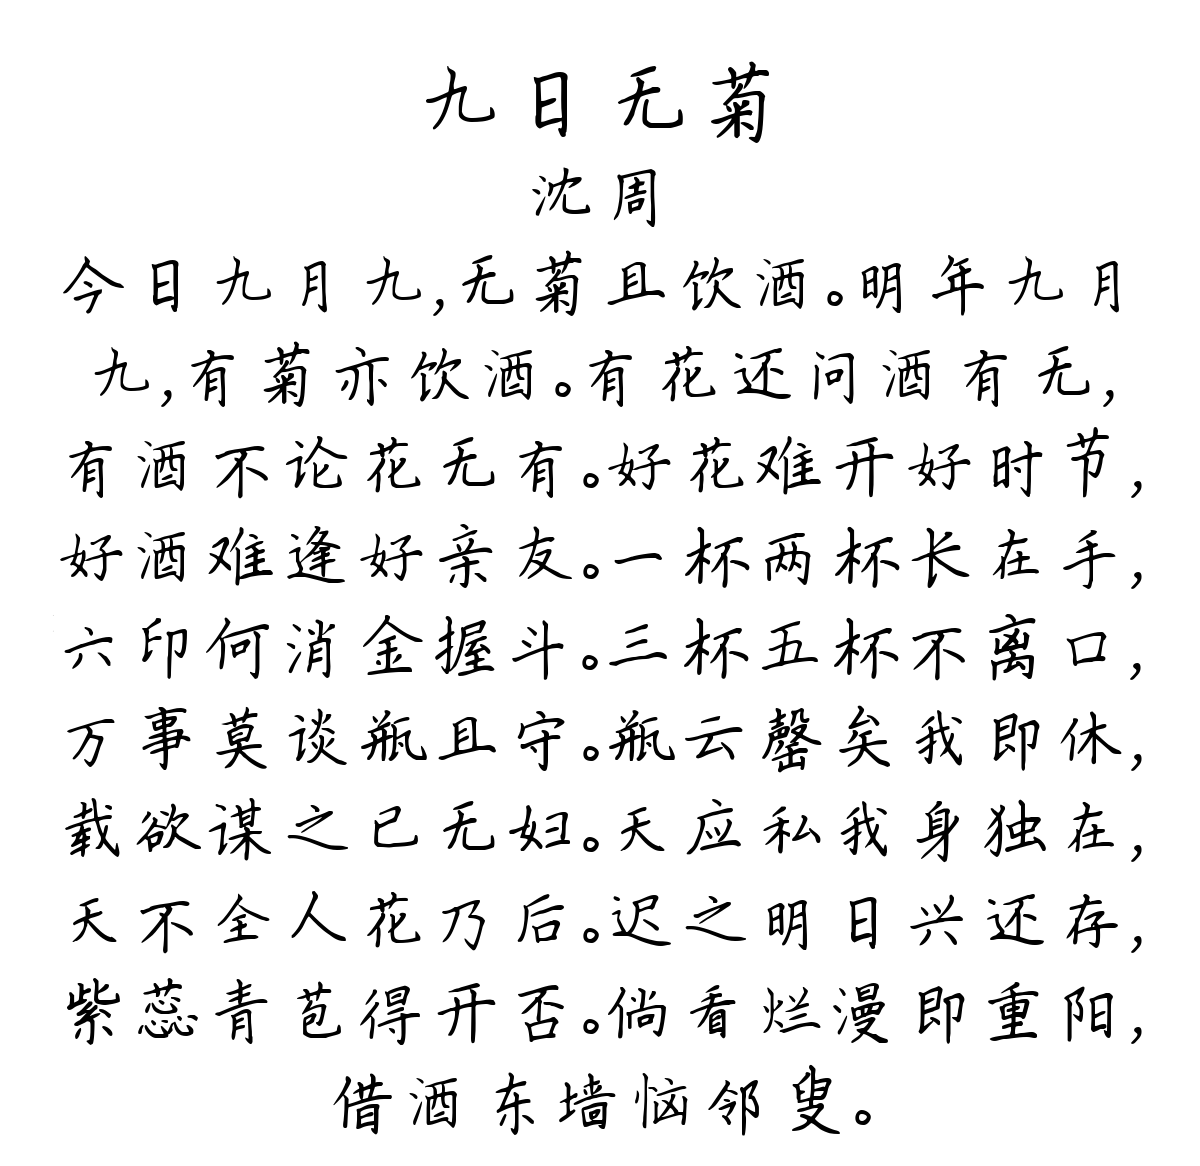 九日无菊
沈周
今日九月九,无菊且饮酒。明年九月
九,有菊亦饮酒。有花还问酒有无,
有酒不论花无有。好花难开好时节,
好酒难逢好亲友。一杯两杯长在手,
六印何消金握斗。三杯五杯不离口,
万事莫谈瓶且守。瓶云罄矣我即休,
载欲谋之已无妇。天应私我身独在,
天不全人花乃后。迟之明日兴还存,
紫蕊青苞得开否。倘看烂漫即重阳,
借酒东墙恼邻叟。